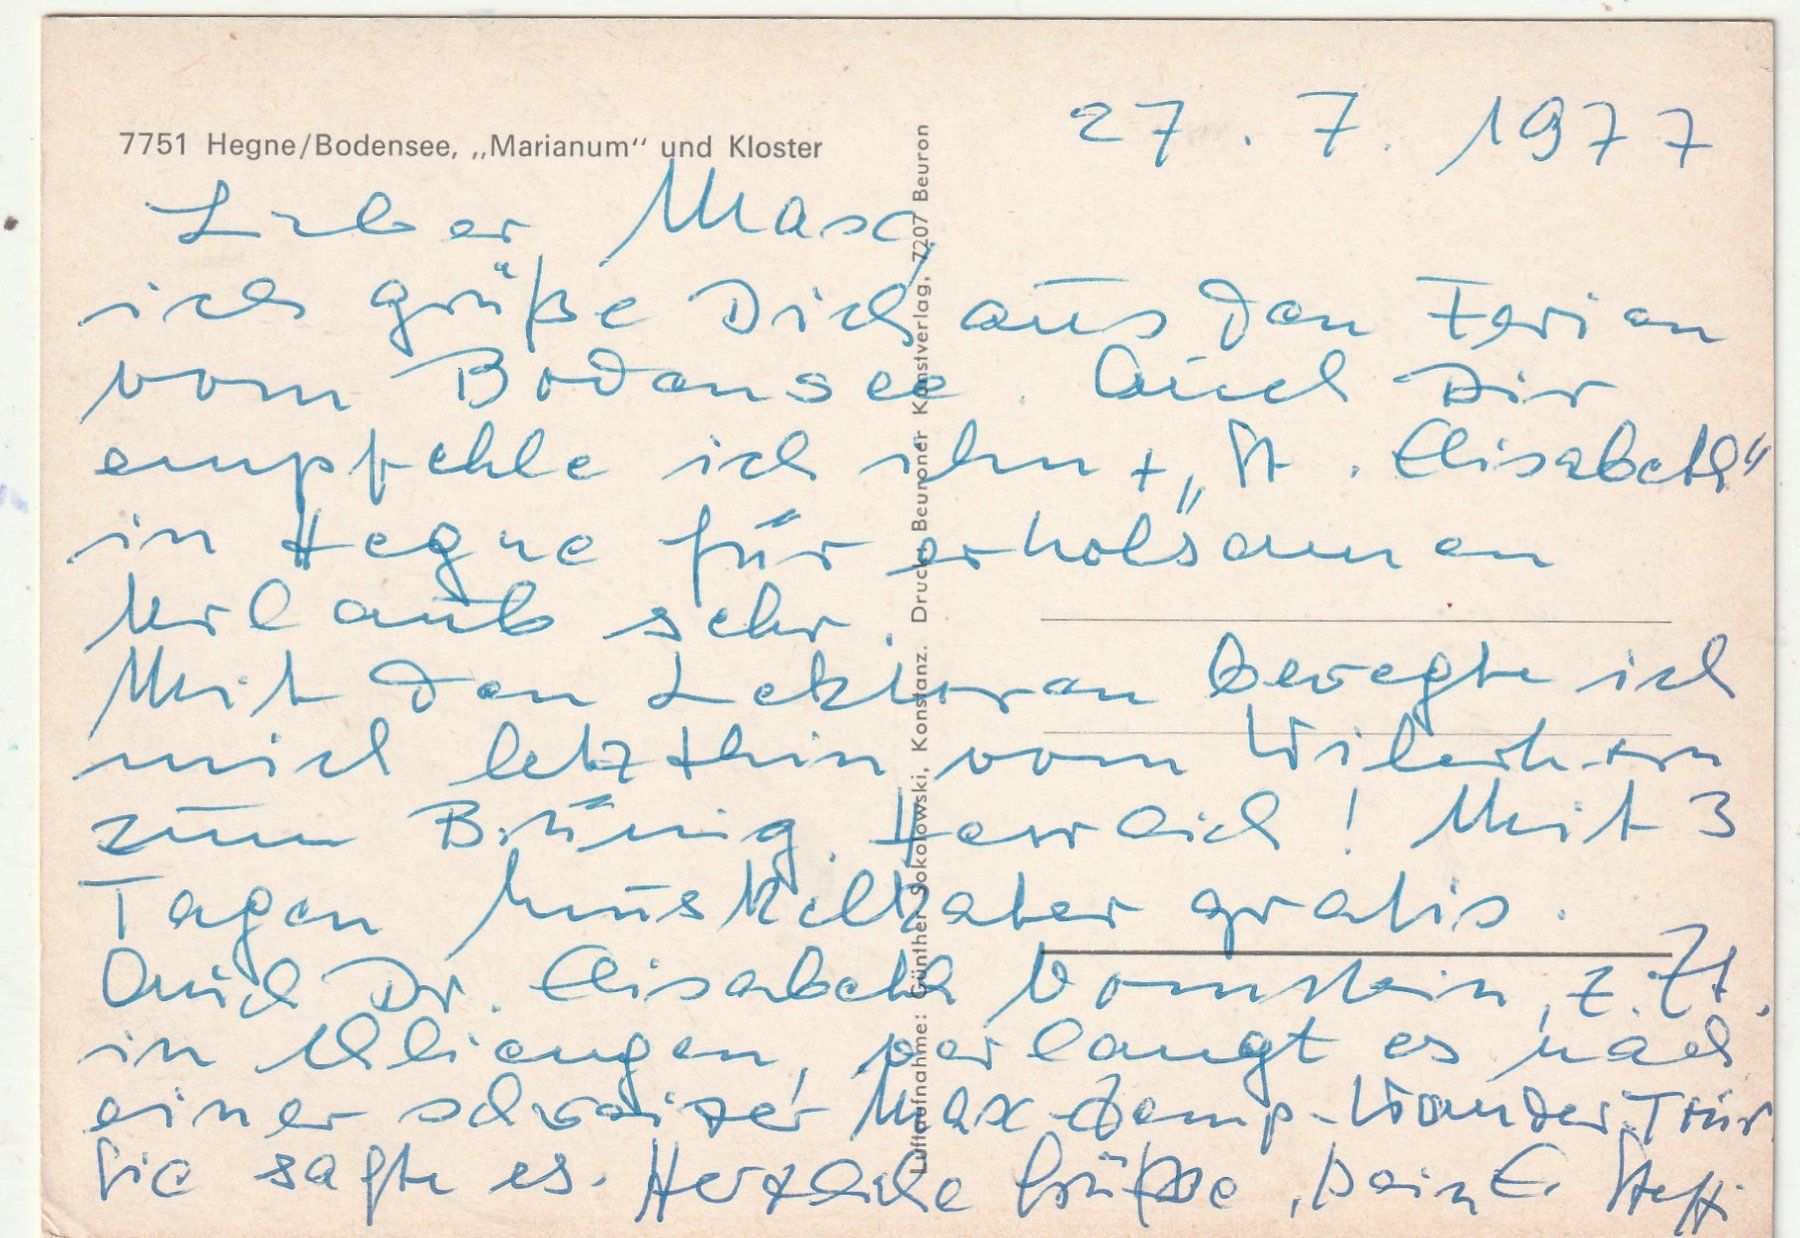 7751 Hegne/Bodensee, „Marianum“ und Kloster
27. 7. 1977
Lieber Max,
ich grüße Dich aus den Ferien
vom Bodensee. Auch Dir
empfehle ich ihn + „St. Elisabeth“
in Hegne für erholsamen
Urlaub sehr.
Mit den Lektoren bewegte ich
mich letzthin vom Wilerhorn
zum Brünig. Herrlich! Mit 3
Tagen Muskelkater gratis.
Auch Dr. Elisabeth Vomstein, z. Zt.
in Uliengen, verlangt es nach
einer schweizer Max-Camp-Wander Tour
Sie sagte es. Herzliche Grüße, Dein E. Steffi
Luftaufnahme: Günther Sokolowski, Konstanz. Druck: Beuroner Kunstverlag, 7207 Beuron